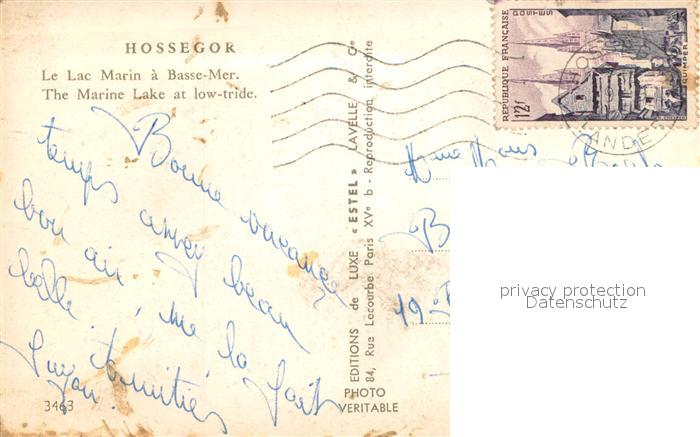 HOSSEGOR
Le Lac Marin à Basse-Mer.
The Marine Lake at low-tride.
Bonne vacance
temps assez beau
bon air
belle me la fait
amitiés
3463
EDITIONS de LUXE « ESTEL » LAVELLE & Cie
84, Rue Lecourbe Paris XVe b - Reproduction interdite
PHOTO
VERITABLE
REPUBLIQUE FRANÇAISE
POSTES
12f
QUIMPER
LANDES
19
privacy protection
Datenschutz